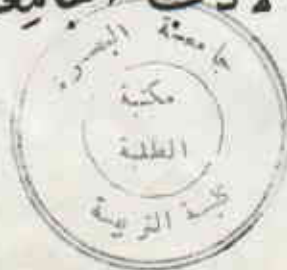 جامعة البصرة
مكتبة
الطلبة
كلية التربية